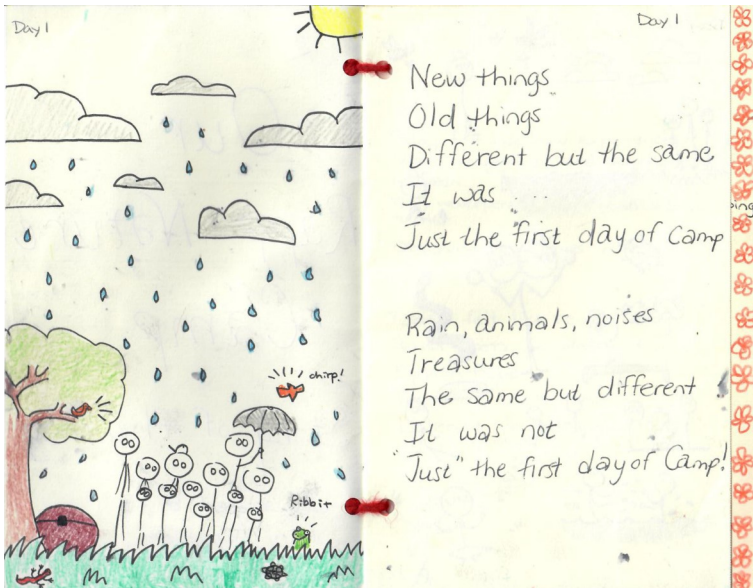 Day 1
chirp!
Ribbit
Day 1
New things
Old things
Different but the same
It was
Just the first day of Camp
Rain, animals, noises
Treasures
The same but different
It was not
"Just" the first day of Camp!